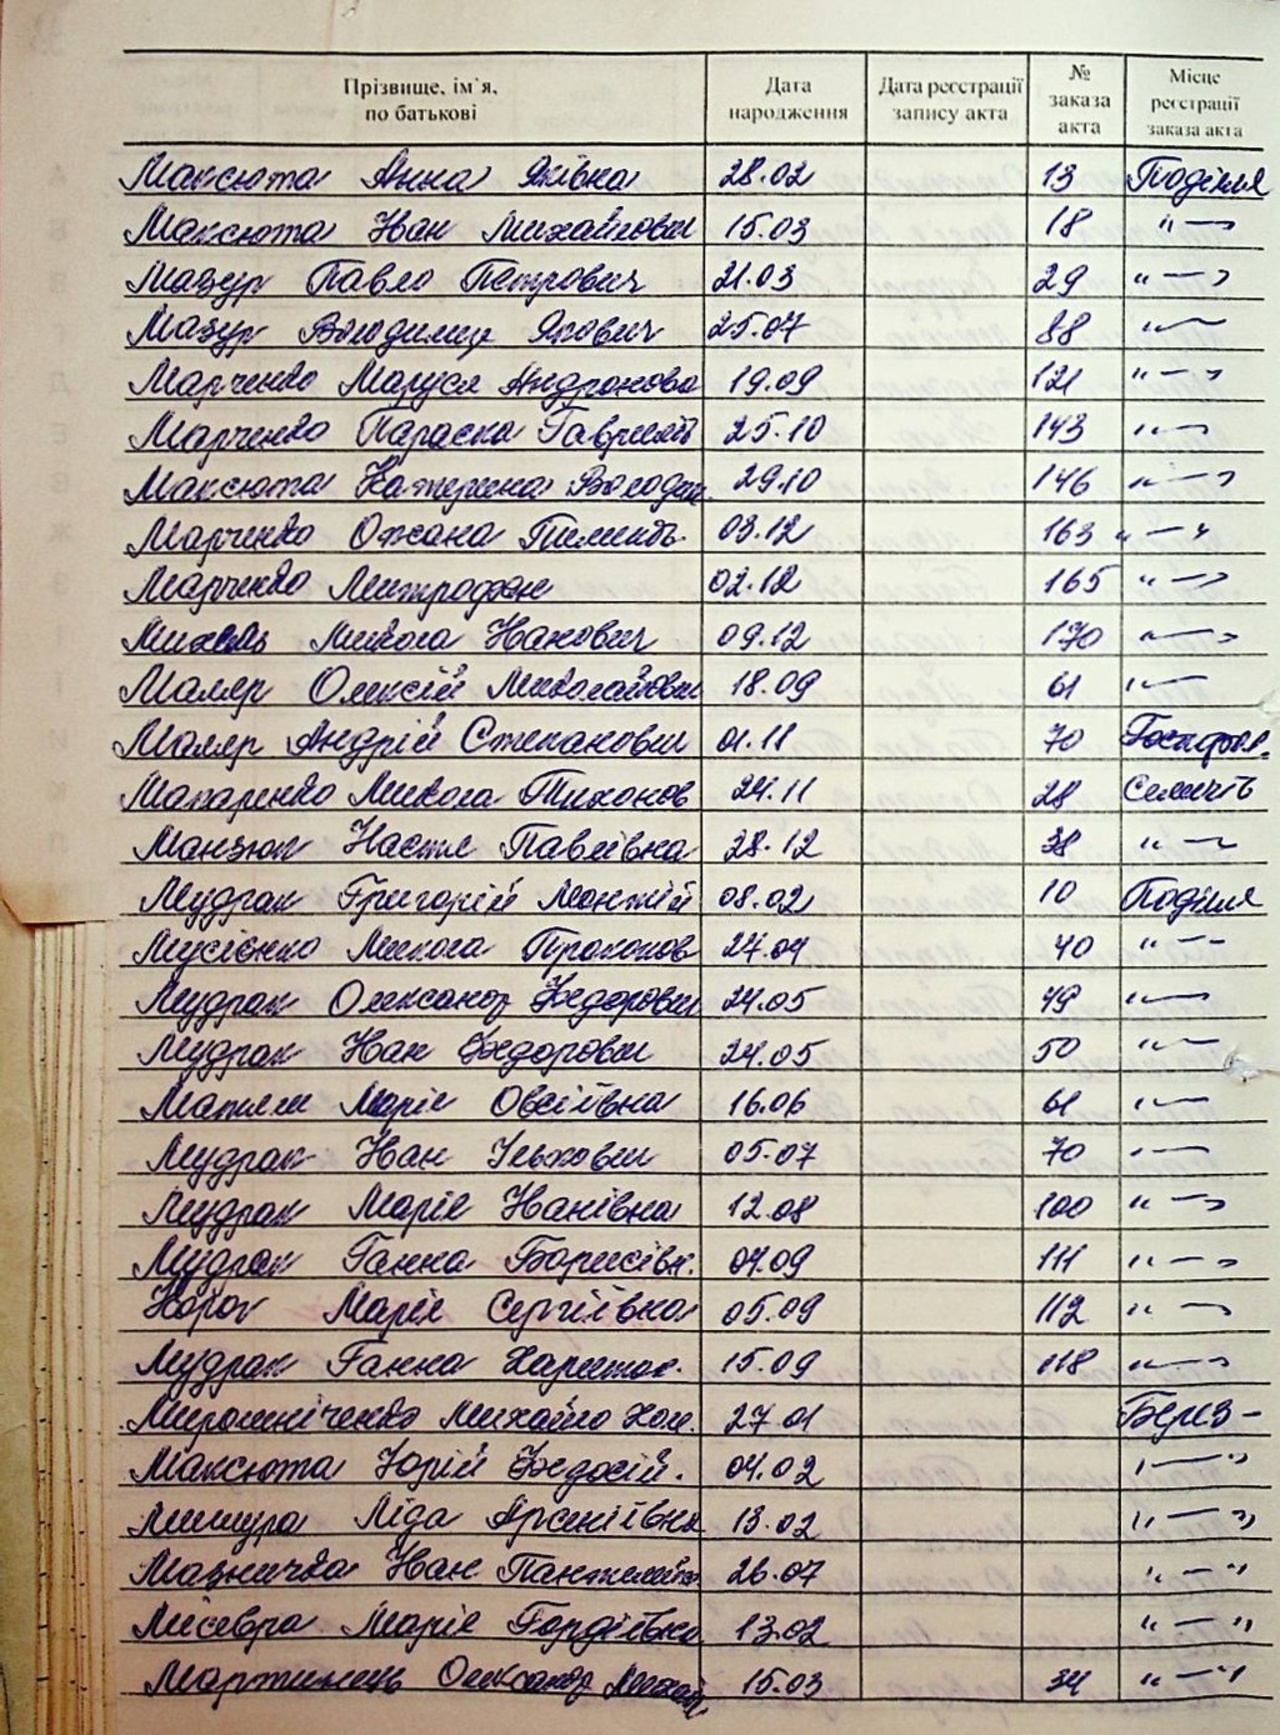 Прізвище, ім`я, по батькові | Дата народження | Дата реєстрації запису акта | № заказа акта | Місце реєстрації заказа акта
Максюта Анна Яківна 28.02 13 Поділля
Максюта Іван Михайлови 15.03 18 " —
Мазур Павло Петрович 21.03 29 " — "
Мазур Володимир Якович 25.07 88 " —
Марченко Маруся Андронова 19.09 121 " — "
Марченко Параска Гаврилів 25.10 143 " —
Максюта Катерина Володим. 29.10 146 " — "
Марченко Оксана Пименів. 03.12 163 " — "
Марченко Митрофан 02.12 165 " — "
Микола Іванович 09.12 170 " — "
Маляр Олексій Миколайови 18.09 61 " —
Маляр Андрій Степанови 01.11 70
Макаренко Микола Тихонов 24.11 28
Манзюк Настя Павлівна 28.12 38 " —
Мудрак Григорій 08.02 10 Поділля
Мусієнко Микола Прокопов 27.04 40 " —
Мудрак Олександр Федорови 24.05 49 " —
Мудрак Іван Федорови 24.05 50 " —
Марія Овсіївна 16.06 61 " —
Мудрак Іван Ількови 05.07 70 " —
Мудрак Марія Іванівна 12.08 100 " — "
Мудрак Ганна Борисівн. 04.09 111 " — "
Марія Сергіївна 05.09 112 " — "
Мудрак Ганна Харитон. 15.09 118 " — "
Мирошніченко Михайло 27.01 Берез-
Максюта Юрій Федосій. 04.02 " — "
Мишура Ліда Арсеніївна 13.02 " — "
Мазничка Іван 26.07 " — "
Марія Гордіївна 13.02 " — "
Мартинець Олександр 15.03 34 " — "